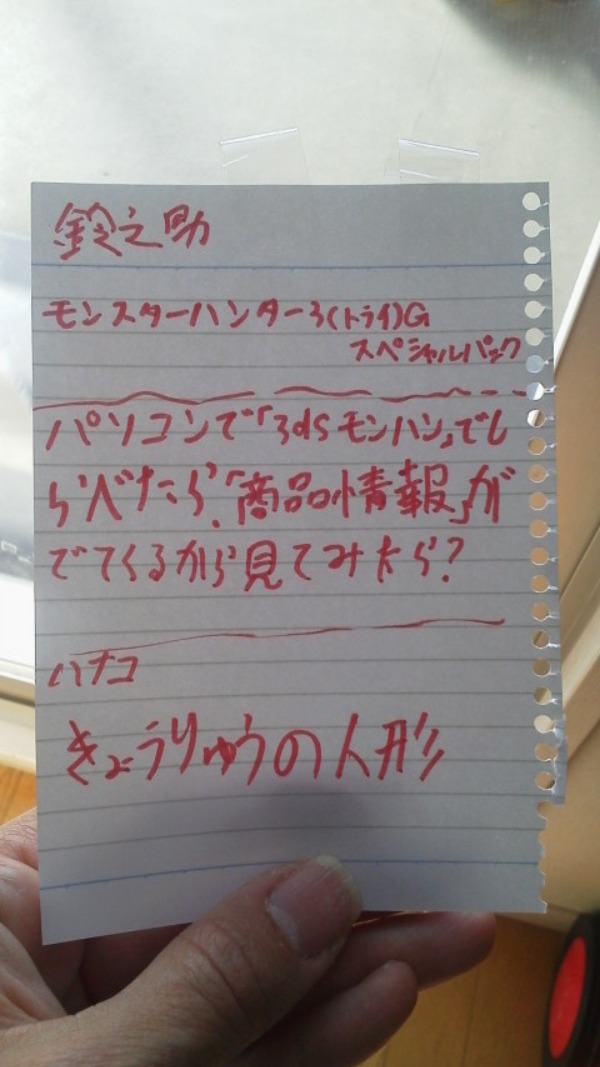 鈴之助
モンスターハンター3(トライ)G
スペシャルパック
パソコンで「3dsモンハン」でし
らべたら、「商品情報」が
でてくるから見てみたら?
ハナコ
きょうりゅうの人形